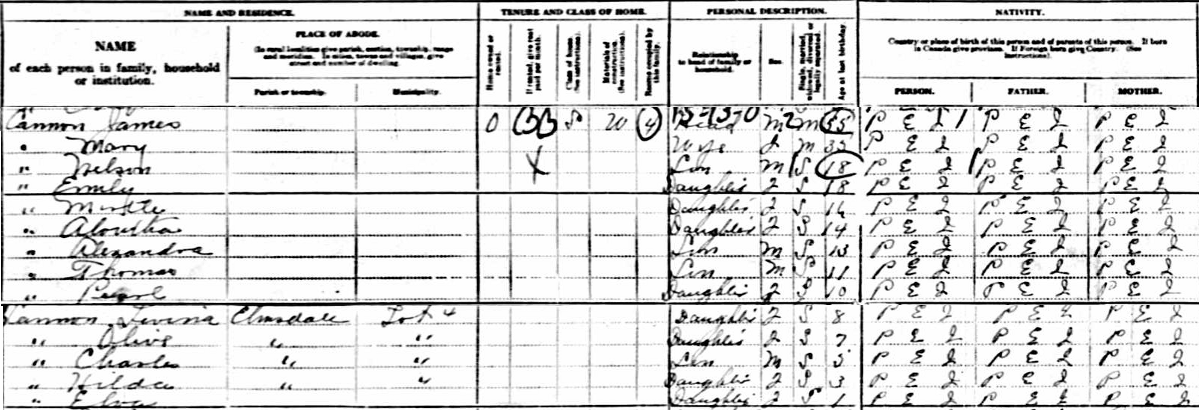 NAME AND RESIDENCE. TENURE AND CLASS OF HOME. PERSONAL DESCRIPTION. NATIVITY.
NAME
of each person in family, household
or institution.
PLACE OF ABODE.
(In rural localities give parish, section, township, range
and meridian. In cities, towns and villages, give
street and number of dwelling.
Parish or township. Municipality.
Home owned or rented.
If rented, give rent paid per month.
Class of house (See instructions).
Materials of construction (See instructions).
Rooms occupied by this family.
Relationship
to head of family or
household.
Sex.
Single, married, widowed, divorced or legally separated.
Age at last birthday.
Country or place of birth of this person and of parents of this person. If born
in Canada give province. If Foreign born give Country. (See
Instructions).
PERSON. FATHER. MOTHER.
Cannon James O S W 4 Head M M P E I P E I P E I
" Mary Wife F M P E I P E I P E I
" Nelson X Son M S 18 P E I P E I P E I
" Emily Daughter F S 18 P E I P E I P E I
" Daughter F S P E I P E I P E I
" Daughter F S 14 P E I P E I P E I
" Alexandra Son M S 13 P E I P E I P E I
" Thomas Son M S 11 P E I P E I P E I
" Pearl Daughter F S 10 P E I P E I P E I
Cannon Livina Elmsdale Lot 4 Daughter F S 8 P E I P E I P E I
" Olive " " Daughter F S 7 P E I P E I P E I
" Charles " " Son M S 5 P E I P E I P E I
" Hilda " " Daughter F S 3 P E I P E I P E I
" Elva Daughter F S 1 P E I P E I P E I